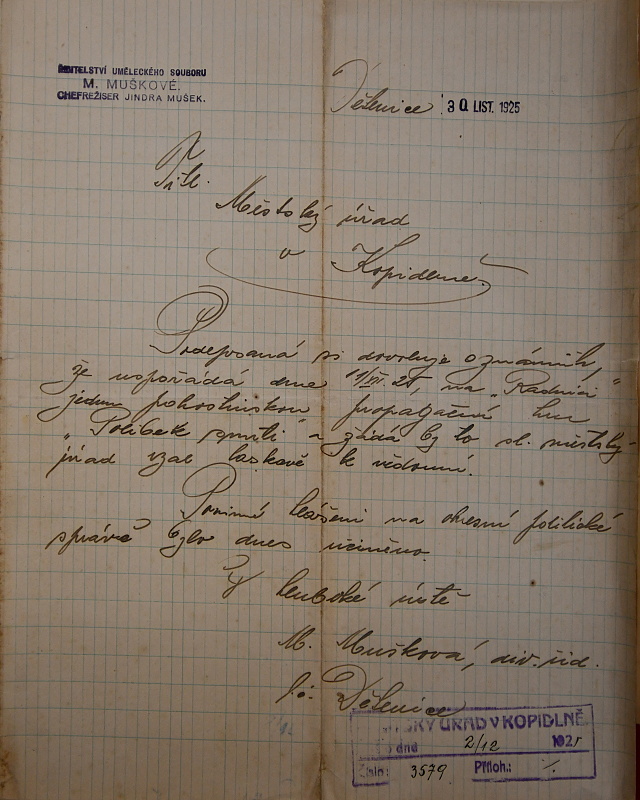 ŘEDITELSTVÍ UMĚLECKÉHO SOUBORU
M. MUŠKOVÉ.
CHEFREŽISER JINDRA MUŠEK.
Dětenice 30 LIST. 1925
Tit.
Městský úřad
v Kopidlně.
Podepsaná si dovoluje oznámiti,
že uspořádá dne 25, na „Radnici"
jednu pohostinskou propagační hru
„Polibek smrti" a žádá by to sl. městský
úřad vzal laskavě k vědomí.
Povinné hlášení na okresní politické
správě bylo dnes učiněno.
V hluboké úctě
M. Mušková, div. řed.
Dětenice
MĚSTSKÝ ÚŘAD V KOPIDLNĚ.
dne 2/12 1925
Číslo: 3579 Příloh.: /.